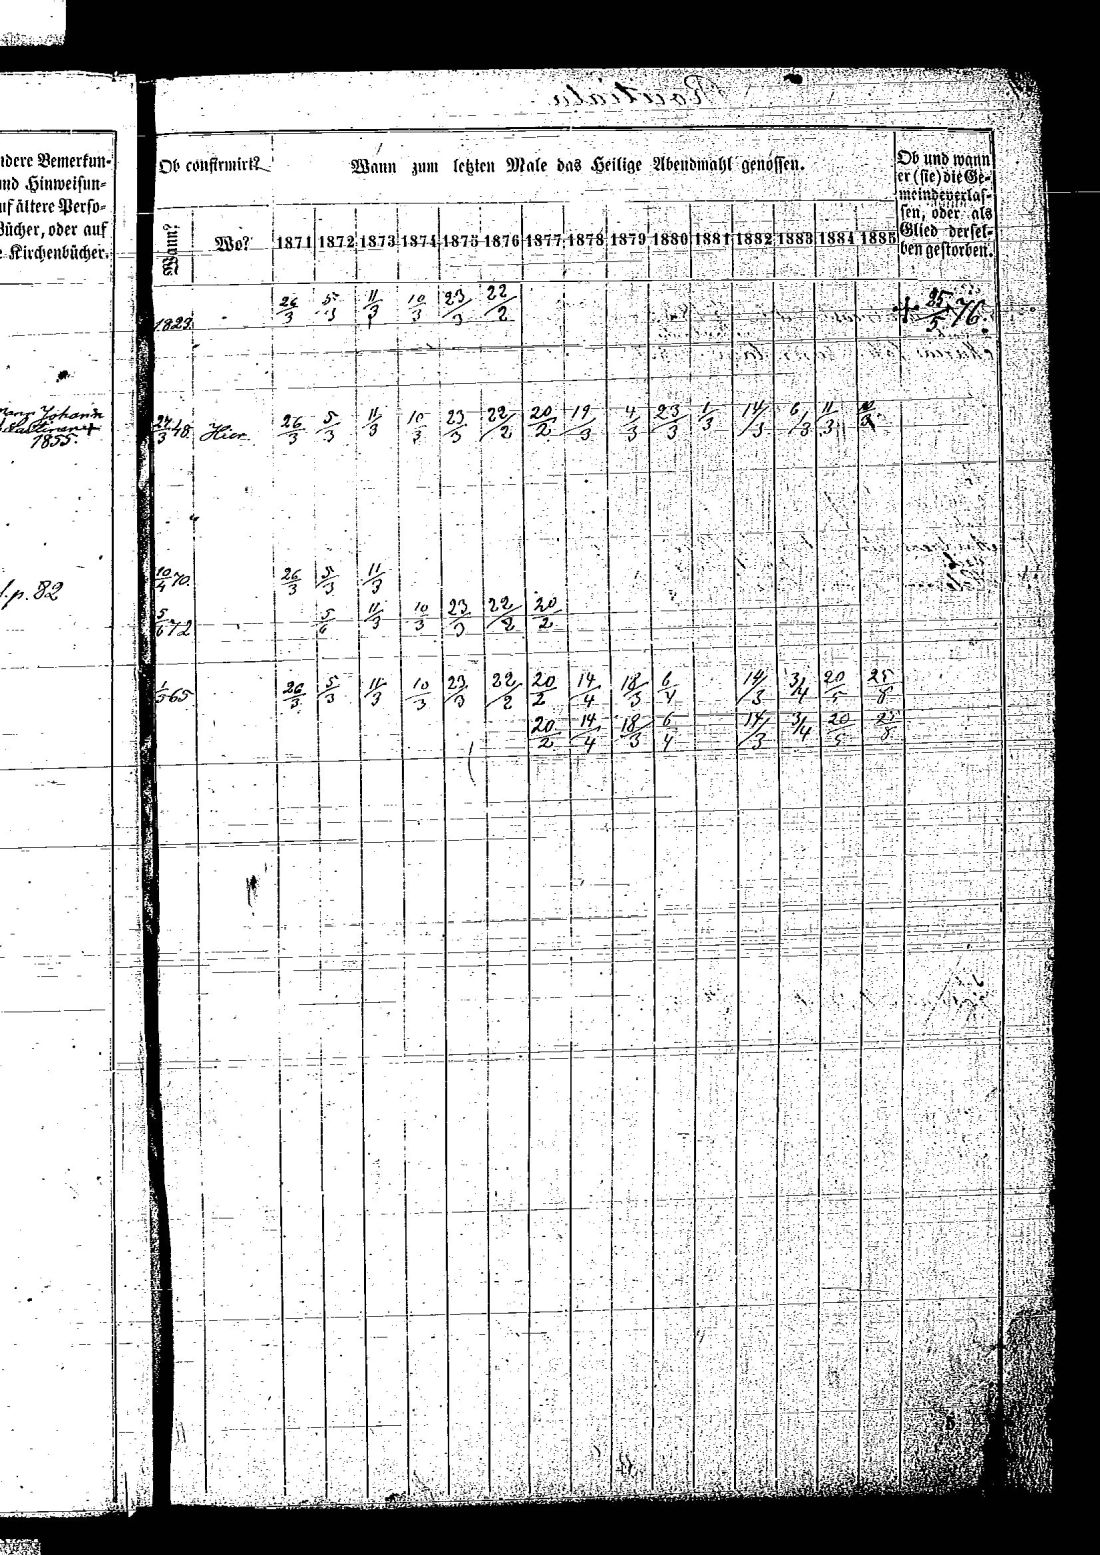 ndere Bemerkun-
nd Hinweisun-
uf ältere Perso-
Bücher, oder auf
e Kirchenbücher.
Johann
1855.
p. 82
Ob confirmirt? Wann zum letzten Male das Heilige Abendmahl genossen. Ob und wann
er (sie) die Ge-
meinde verlas-
sen, oder als
Glied dersel-
ben gestorben.
Wann? Wo? 1871 1872 1873 1874 1875 1876 1877 1878 1879 1880 1881 1882 1883 1884 1885
1823. 26/3 5/3 11/3 10/3 23/3 22/2 + 25/5 76.
24/3 48. Hier 26/3 5/3 11/3 10/3 23/3 22/2 20/2 19/3 4/3 23/3 1/3 14/3 6/3 11/3
10/4 70. 26/3 5/3 11/3
5/6 72 5/6 11/3 10/3 23/3 22/2 20/2
1/5 65 26/3 5/3 11/3 10/3 23/3 22/2 20/2 14/4 18/3 6/4 14/3 3/4 20/5 25/8
20/2 14/4 18/3 6/4 14/3 3/4 20/5 25/8